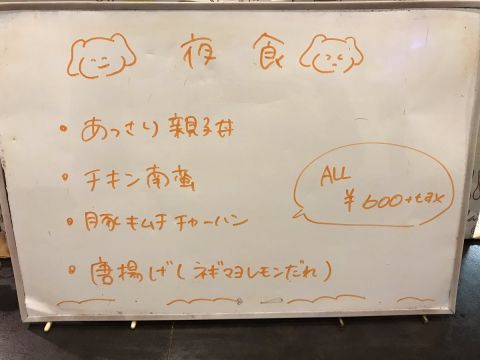 夜食
・あっさり親子丼
・チキン南蛮
・豚キムチチャーハン
・唐揚げ(ネギマヨレモンだれ)
ALL
¥600+tax